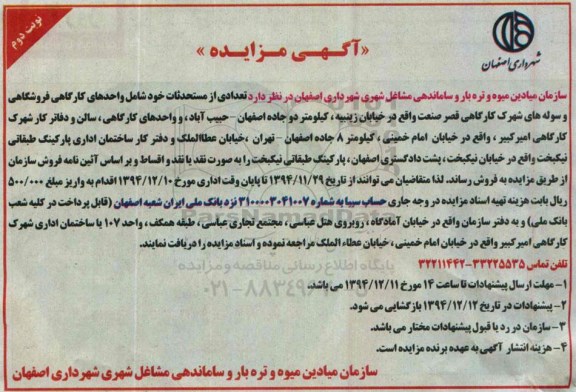 نوبت دوم
شهرداری اصفهان
«آگهی مزایده»
سازمان میادین میوه و تره بار و ساماندهی مشاغل شهری شهرداری اصفهان در نظر دارد تعدادی از مستحدثات خود شامل واحدهای کارگاهی فروشگاهی
و سوله های شهرک کارگاهی قصر صنعت واقع در خیابان زینبیه ، کیلومتر دو جاده اصفهان - حبیب آباد ، و واحدهای کارگاهی ، سالن و دفاتر کار شهرک
کارگاهی امیرکبیر ، واقع در خیابان امام خمینی ، کیلومتر ۸ جاده اصفهان - تهران ،خیابان عطاالملک و دفتر کار ساختمان اداری پارکینگ طبقاتی
نیکبخت واقع در خیابان نیکبخت ، پشت دادگستری اصفهان ، پارکینگ طبقاتی نیکبخت را به صورت نقد یا نقد و اقساط و بر اساس آئین نامه فروش سازمان
از طریق مزایده به فروش رساند. لذا متقاضیان می توانند از تاریخ ۱۳۹۴/۱۱/۲۹ تا پایان وقت اداری مورخ ۱۳۹۴/۱۲/۱۰ اقدام به واریز مبلغ ۵۰۰/۰۰۰
ریال بابت هزینه تهیه اسناد مزایده در وجه جاری حساب سیبا به شماره ۳۱۰۰۰۰۳۰۴۱۰۰۷ نزد بانک ملی ایران شعبه اصفهان (قابل پرداخت در کلیه شعب
بانک ملی) و به دفتر سازمان واقع در خیابان آمادگاه ، روبروی هتل عباسی ، مجتمع تجاری عباسی ، طبقه همکف ، واحد ۱۰۷ یا ساختمان اداری شهرک
کارگاهی امیرکبیر واقع در خیابان امام خمینی ، خیابان عطاء الملک مراجعه نموده و اسناد مزایده را دریافت نمایند.
تلفن تماس ۳۳۲۲۵۵۳۵-۳۲۲۱۱۴۴۲
۱- مهلت ارسال پیشنهادات تا ساعت ۱۴ مورخ ۱۳۹۴/۱۲/۱۱ می باشد.
۲- پیشنهادات در تاریخ ۱۳۹۴/۱۲/۱۲ بازگشایی می شود.
۳- سازمان در رد یا قبول پیشنهادات مختار می باشد.
۴- هزینه انتشار آگهی به عهده برنده مزایده است.
سازمان میادین میوه و تره بار و ساماندهی مشاغل شهری شهرداری اصفهان
پایگاه اطلاع رسانی مناقصه و مزایده